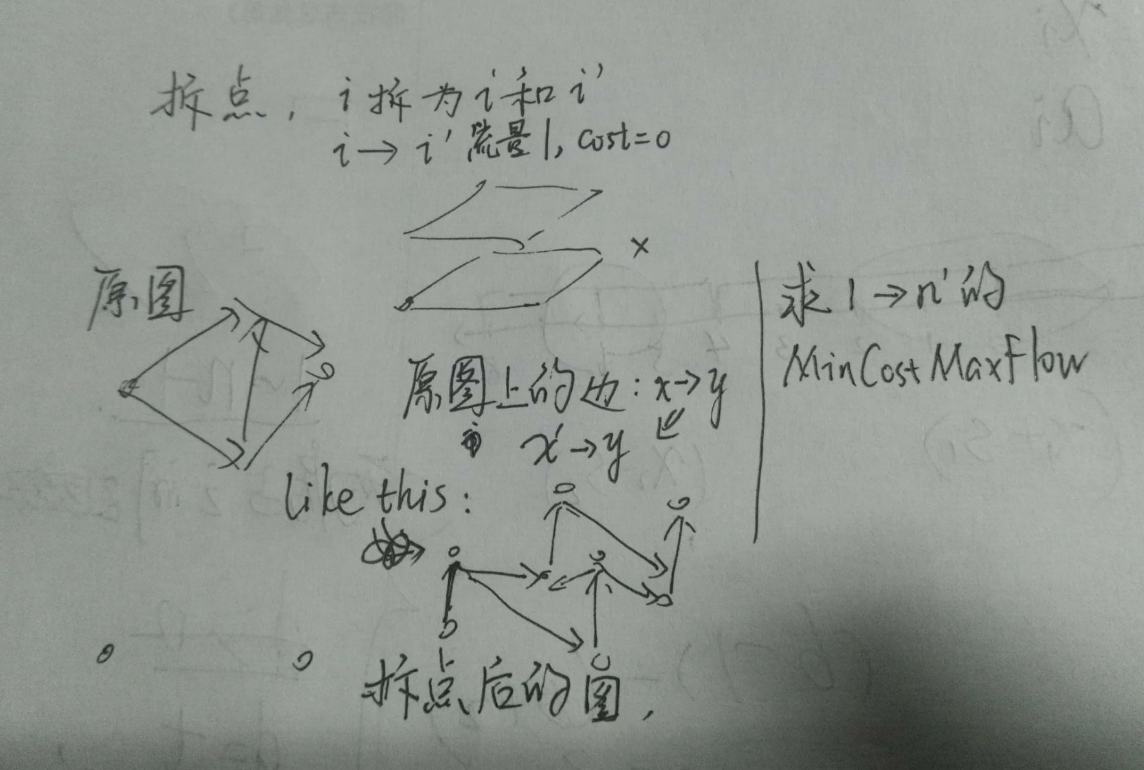 拆点，i拆为i和i'
i→i'流量1，cost=0
原图
×
原图上的边：x→y
x'→y
求1→n'的
MinCostMaxFlow
like this：
拆点后的图，